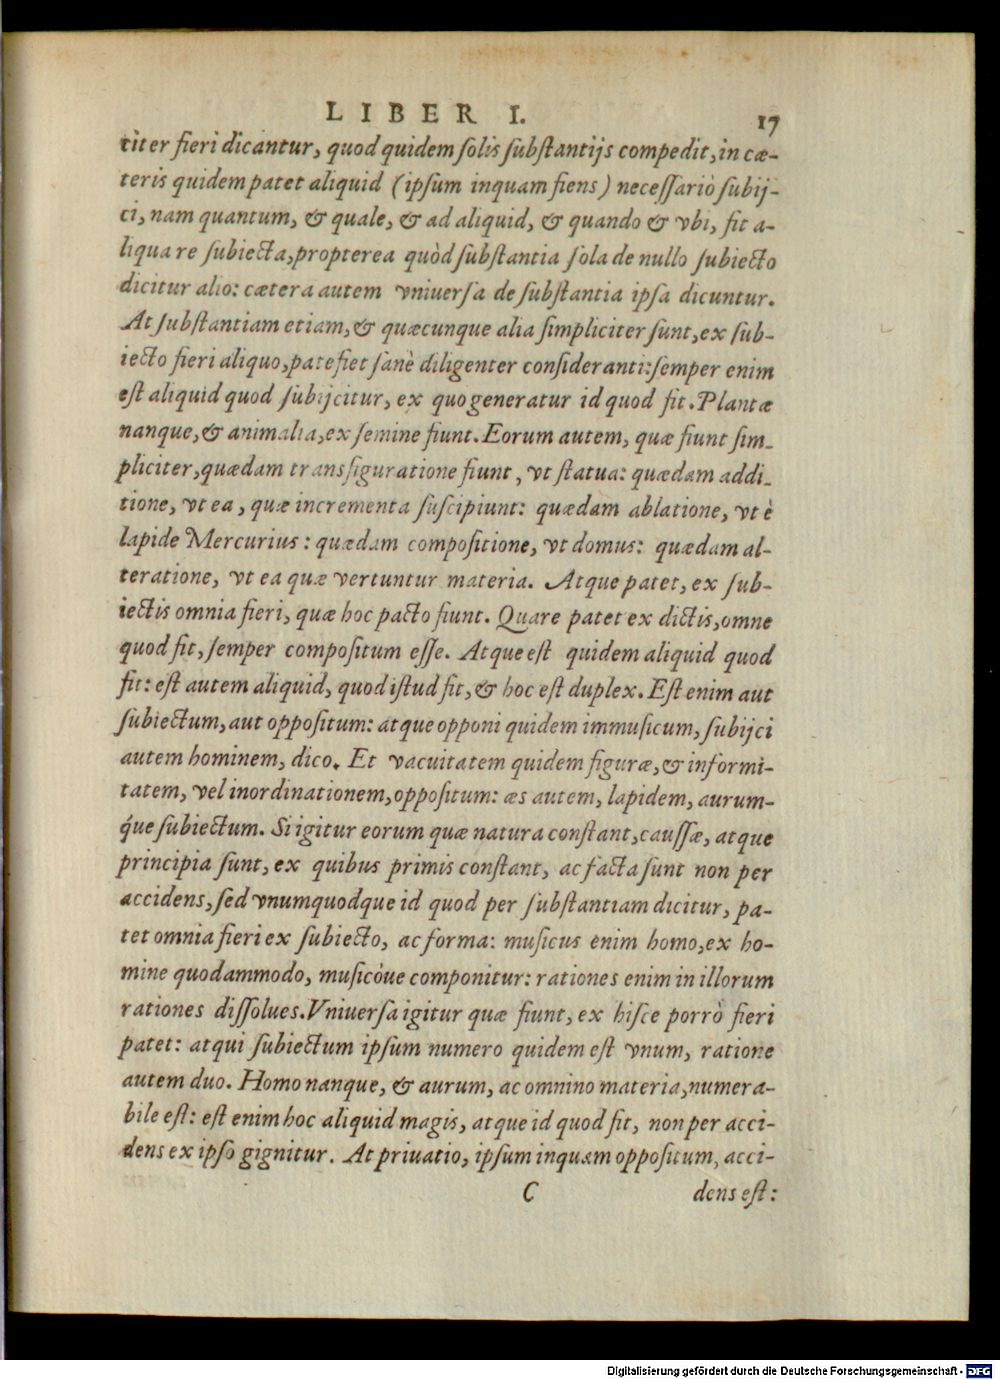 LIBER I. 17
titer fieri dicantur, quod quidem solis substantijs compedit, in cæ-
teris quidem patet aliquid (ipsum inquam fiens) necessariò subij-
ci, nam quantum, & quale, & ad aliquid, & quando & vbi, fit a-
liqua re subiecta, propterea quòd substantia sola de nullo subiecto
dicitur alio: cætera autem vniuersa de substantia ipsa dicuntur.
At substantiam etiam, & quæcunque alia simpliciter sunt, ex sub-
iecto fieri aliquo, patefiet sanè diligenter consideranti: semper enim
est aliquid quod subijcitur, ex quo generatur id quod fit. Plantæ
nanque, & animalia, ex semine fiunt. Eorum autem, quæ fiunt sim-
pliciter, quædam transfiguratione fiunt, vt statua: quædam addi-
tione, vt ea, quæ incrementa suscipiunt: quædam ablatione, vt è
lapide Mercurius: quædam compositione, vt domus: quædam al-
teratione, vt ea quæ vertuntur materia. Atque patet, ex sub-
iectis omnia fieri, quæ hoc pacto fiunt. Quare patet ex dictis, omne
quod fit, semper compositum esse. Atque est quidem aliquid quod
fit: est autem aliquid, quod istud fit, & hoc est duplex. Est enim aut
subiectum, aut oppositum: atque opponi quidem immusicum, subijci
autem hominem, dico. Et vacuitatem quidem figuræ, & informi-
tatem, vel inordinationem, oppositum: æs autem, lapidem, aurum-
q́ue subiectum. Si igitur eorum quæ natura constant, caussæ, atque
principia sunt, ex quibus primis constant, ac facta sunt non per
accidens, sed vnumquodque id quod per substantiam dicitur, pa-
tet omnia fieri ex subiecto, ac forma: musicus enim homo, ex ho-
mine quodammodo, musicòue componitur: rationes enim in illorum
rationes dissolues. Vniuersa igitur quæ fiunt, ex hisce porrò fieri
patet: atqui subiectum ipsum numero quidem est vnum, ratione
autem duo. Homo nanque, & aurum, ac omnino materia, numera-
bile est: est enim hoc aliquid magis, atque id quod fit, non per acci-
dens ex ipso gignitur. At priuatio, ipsum inquam oppositum, acci-
C dens est:
Digitalisierung gefördert durch die Deutsche Forschungsgemeinschaft - DFG